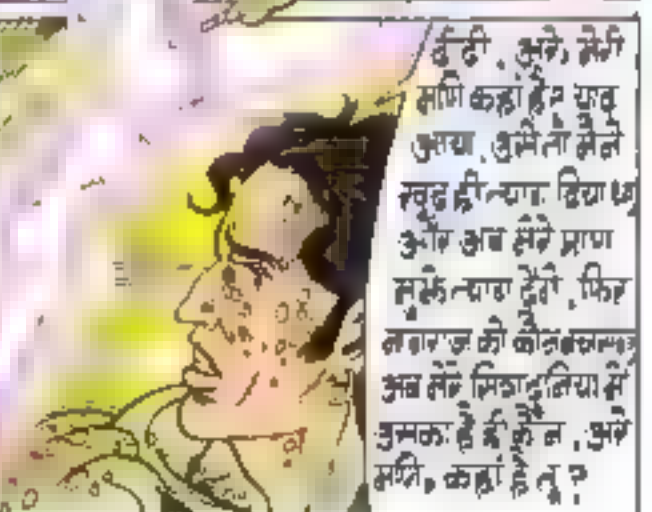 दीदी, अरे, मेरी
मणि कहां है? याद
आया, उसे तो मैंने
खुद ही त्याग दिया था
और अब मेरे प्राण
मुझे त्याग देंगे, फिर
नागराज को कौन
अब मेरे सिवा दुनिया में
उसका है ही कौन, अरे
मणि, कहां है तू?